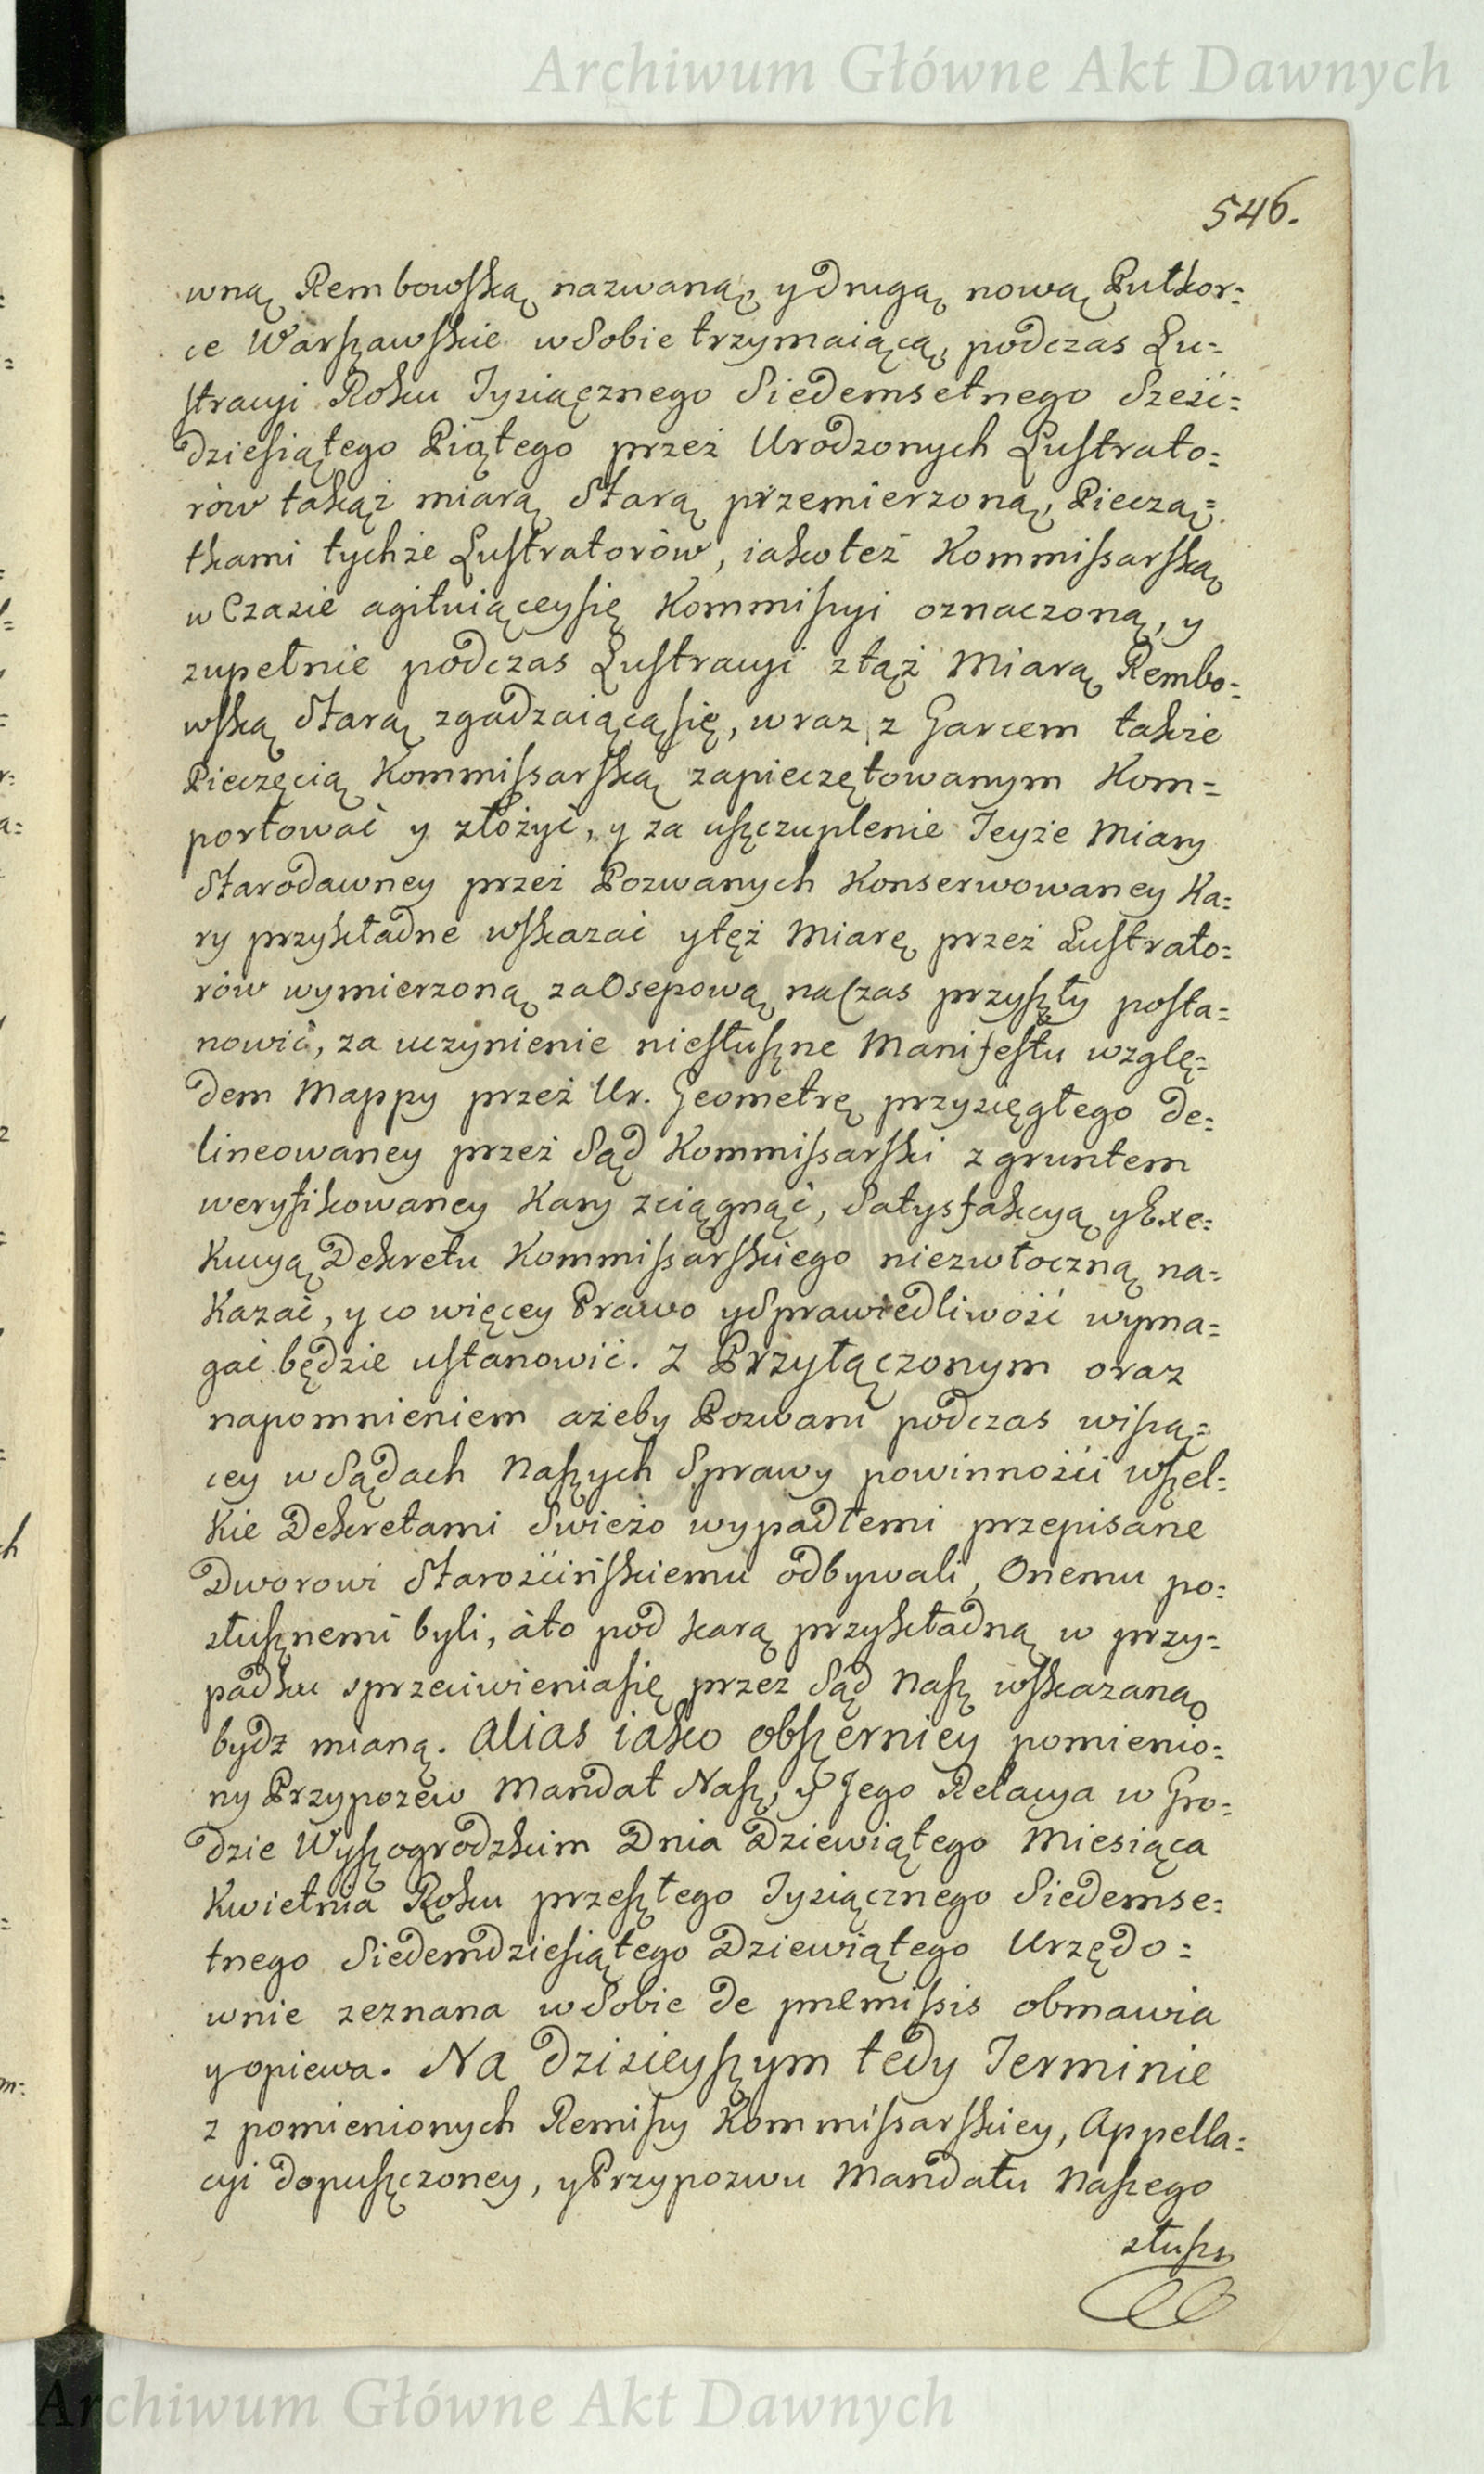 Archiwum Główne Akt Dawnych
546.
wną Rembowską nazwaną, y drugą nową Pułkor=
ce Warszawskie w Sobie trzymaiącą, podczas Lu=
stracyi Roku Tysiącznego Siedemsetnego Sześć=
dziesiątego Piątego przez Urodzonych Lustrato=
rów takąż miarą Starą przemierzoną, Pieczą=
tkami tychże Lustratorów, iako też Kommissarską
w Czasie agituiącey się Kommissyi oznaczoną, y
zupełnie podczas Lustracyi z tąż Miarą Rembo=
wską Starą zgadzaiącą się, wraz z Garcem także
Pieczęcią Kommissarską zapieczętowanym Kom=
portować y złożyć, y za uszczuplenie Teyże Miary
Starodawney przez Pozwanych Konserwowaney Ka=
ry przykładne wskazać y tęż Miarę przez Lustrato=
rów wymierzoną za Osepową na Czas przyszły posta=
nowić, za uczynienie niesłuszne Manifestu wzglę=
dem Mappy przez Ur. Geometrę przysięgłego de=
lineowaney przez Sąd Kommissarski z gruntem
weryfikowaney Kary zciągnąć, Satysfakcyą y Exe=
Kucyą Dekretu Kommissarskiego niezwłoczną na=
Kazać, y co więcey Prawo y Sprawiedliwość wyma=
gać będzie ustanowić. Z Przyłączonym oraz
napomnieniem ażeby Pozwani podczas wiszą=
cey w Sądach Naszych Sprawy powinności wszel=
Kie Dekretami Świeżo wypadłemi przepisane
Dworowi Starościńskiemu odbywali, Onemu po=
słusznemi byli, à to pod karą przykładną w przy=
padku sprzeciwienia się przez Sąd Nasz wskazaną
bydz mianą. Alias iako obszerniey pomienio=
ny Przypozew Mandat Nasz, y Jego Relacya w Gro=
dzie Wyszogrodzkim Dnia Dziewiątego Miesiąca
Kwietnia Roku przeszłego Tysiącznego Siedemse=
tnego Siedemdziesiątego Dziewiątego Urzędo=
wnie zeznana w Sobie de pnemissis obmawia
y opiewa. Na dzisieyszym tedy Terminie
z pomienionych Remissy Kommissarskiey, Appella=
cyi dopuszczoney, y Przypozwu Mandatu Naszego
słuszn
Archiwum Główne Akt Dawnych